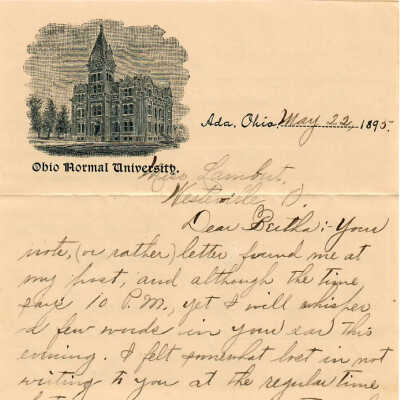 Ada, Ohio, May 22 1895.
Ohio Normal University.
Miss Lambert,
Westerville O.
Dear Bertha:- Your
note, (or rather) letter found me at
my post, and although the time
says 10 P.M., yet I will whisper
a few words in your ear this
evening. I felt somewhat lost in not
writing to you at the regular time